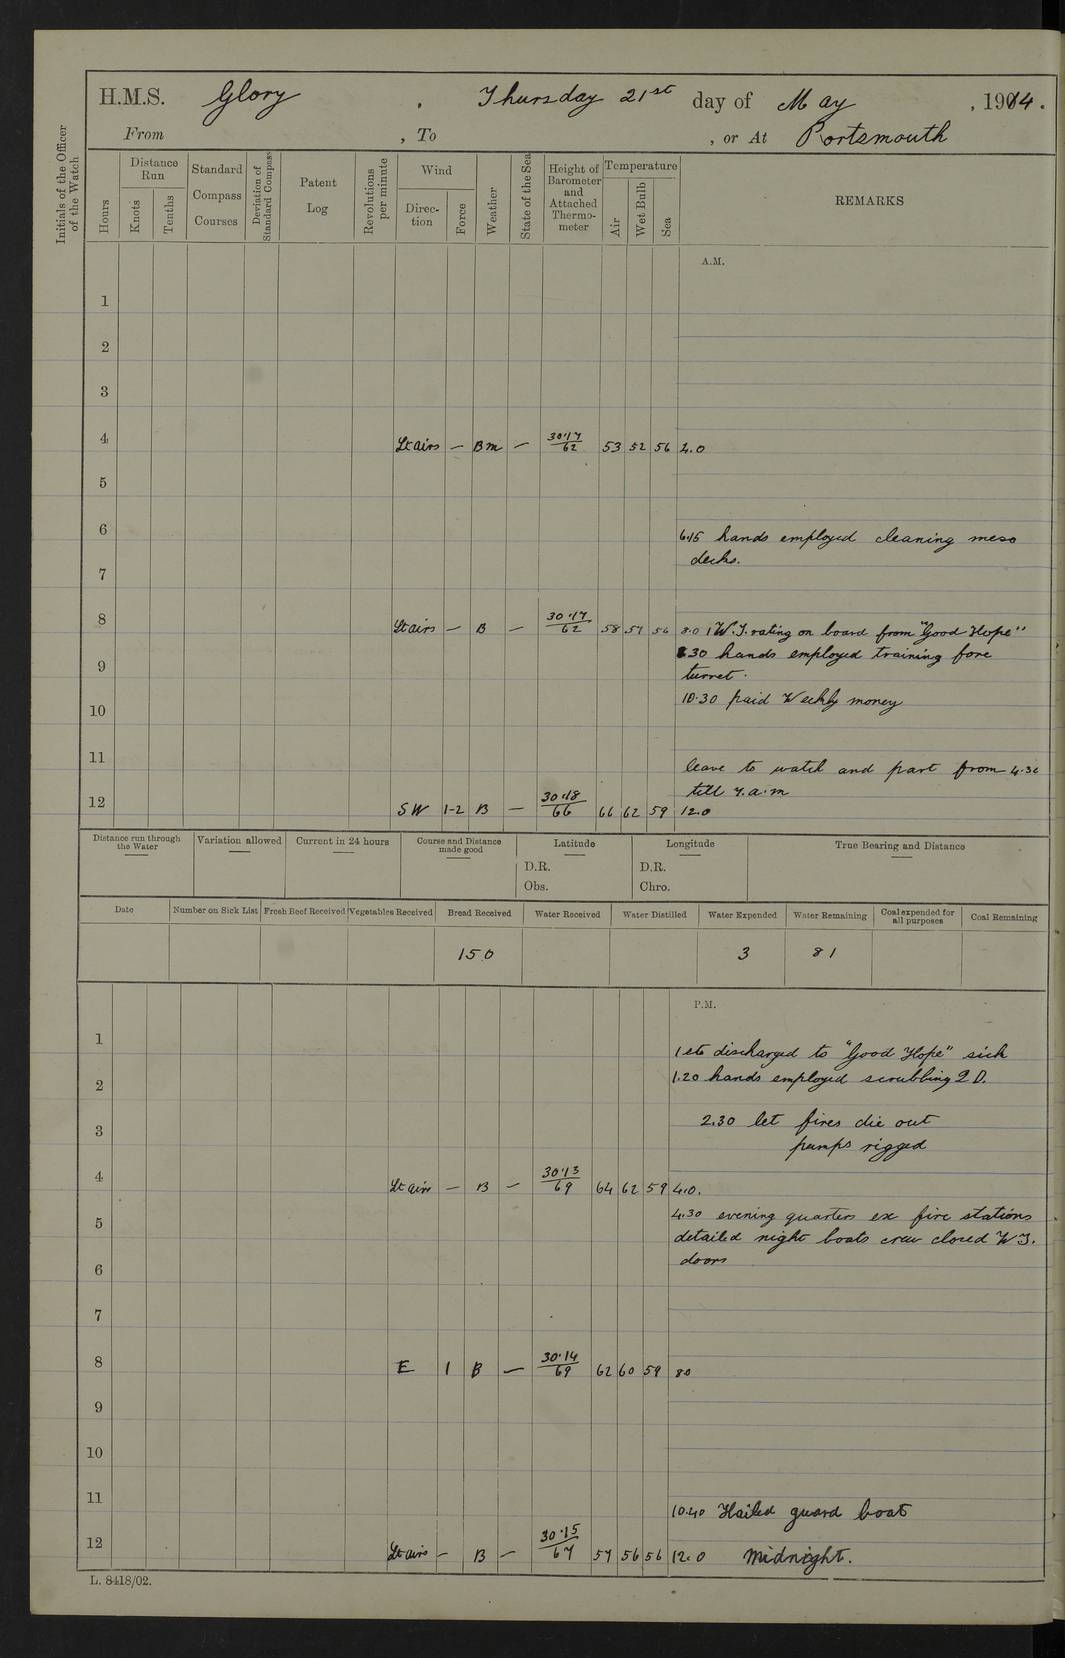 H.M.S. Glory , Thursday 21st day of May , 1914.
From , To , or At Portsmouth
Initials of the Officer of the Watch
Hours
Distance Run
Knots
Tenths
Standard Compass Courses
Deviation of Standard Compass
Patent Log
Revolutions per minute
Wind
Direction
Force
Weather
State of the Sea
Height of Barometer and Attached Thermometer
Temperature
Air
Wet Bulb
Sea
REMARKS
A.M.
1
2
3
4 Lt airs — Bm — 30.17/62 53 52 56 4.0
5
6 6.15 hands employed cleaning mess
decks.
7
8 Lt airs — B — 30.17/62 58 57 56 8.0 1 W.T. rating on board from "Good Hope"
8.30 hands employed training fore
9 turret.
10.30 paid Weekly money
10
11 leave to watch and part from 4.30
till 7.a.m
12 SW 1-2 B — 30.18/66 66 62 59 12.0
Distance run through the Water
Variation allowed
Current in 24 hours
Course and Distance made good
Latitude
D.R.
Obs.
Longitude
D.R.
Chro.
True Bearing and Distance
Date
Number on Sick List
Fresh Beef Received
Vegetables Received
Bread Received
Water Received
Water Distilled
Water Expended
Water Remaining
Coal expended for all purposes
Coal Remaining
150 3 81
P.M.
1 discharged to "Good Hope" sick
2 1.20 hands employed scrubbing Q D.
2.30 let fires die out
3 pumps rigged
4 Lt airs — B — 30.13/69 64 62 59 4.0.
4.30 evening quarters ex fire stations
5 detailed night boats crew closed W T.
doors
6
7
8 E 1 B — 30.14/69 62 60 59 80
9
10
11 10.40 Hailed guard boat
12 Lt airs — B — 30.15/67 57 56 56 12.0 Midnight.
L. 8418/02.